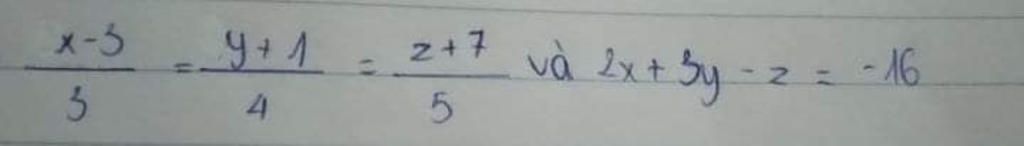 x-3/3 = y+1/4 = z+7/5 và 2x+3y-z = -16